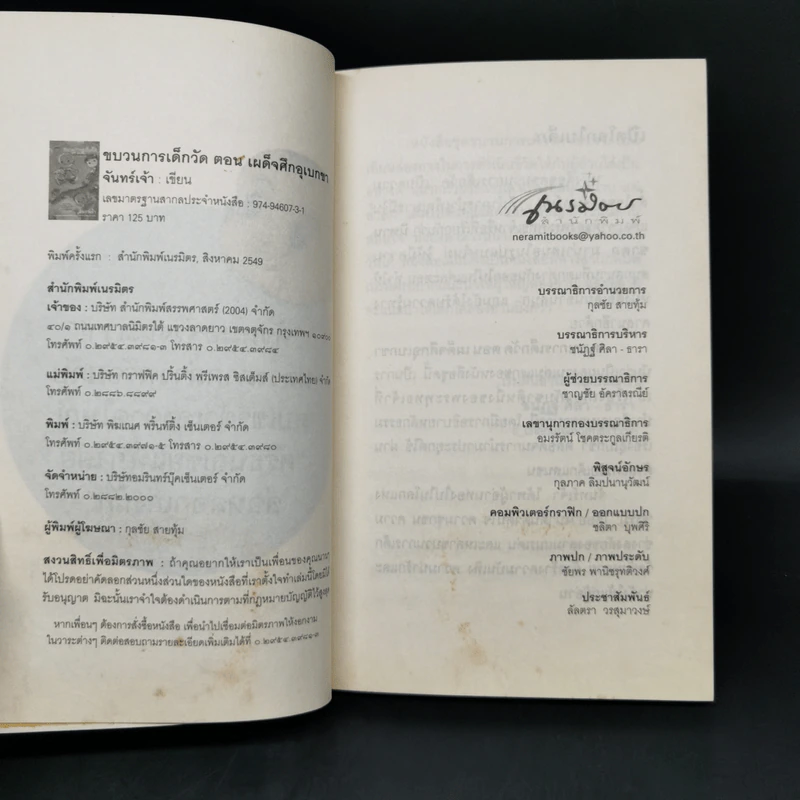 ขบวนการเด็กวัด ตอน เผด็จศึกอุเบกขา
จันทร์เจ้า : เขียน
เลขมาตรฐานสากลประจำหนังสือ : 974-94607-3-1
ราคา 125 บาท
พิมพ์ครั้งแรก : สำนักพิมพ์เนรมิตร, สิงหาคม 2549
สำนักพิมพ์เนรมิตร
เจ้าของ : บริษัท สำนักพิมพ์สรรพศาสตร์ (2004) จำกัด
๔๐/๑ ถนนเทศบาลนิมิตรใต้ แขวงลาดยาว เขตจตุจักร กรุงเทพฯ ๑๐๙๐๐
โทรศัพท์ ๐.๒๙๕๔.๓๙๘๑-๓ โทรสาร ๐.๒๙๕๔.๓๙๘๔
แม่พิมพ์ : บริษัท กราฟฟิค ปริ้นติ้ง พรีเพรส ซิสเต็มส์ (ประเทศไทย) จำกัด
โทรศัพท์ ๐.๒๘๘๖.๘๘๙๙
พิมพ์ : บริษัท พิฆเณศ พริ้นท์ติ้ง เซ็นเตอร์ จำกัด
โทรศัพท์ ๐.๒๙๕๔.๓๙๗๑-๕ โทรสาร ๐.๒๙๕๔.๓๙๘๐
จัดจำหน่าย : บริษัทอมรินทร์บุ๊คเซ็นเตอร์ จำกัด
โทรศัพท์ ๐.๒๘๘๒.๒๐๐๐
ผู้พิมพ์ผู้โฆษณา : กุลชัย สายทุ้ม
สงวนสิทธิ์เพื่อมิตรภาพ : ถ้าคุณอยากให้เราเป็นเพื่อนของคุณนาน
ได้โปรดอย่าคัดลอกส่วนหนึ่งส่วนใดของหนังสือที่เราตั้งใจทำเล่มนี้โดยมิได้
รับอนุญาต มิฉะนั้นเราจำใจต้องดำเนินการตามที่กฎหมายบัญญัติไว้สูงสุด
หากเพื่อนๆ ต้องการสั่งซื้อหนังสือ เพื่อนำไปเชื่อมต่อมิตรภาพให้งอกงาม
ในวาระต่างๆ ติดต่อสอบถามรายละเอียดเพิ่มเติมได้ที่ ๐.๒๙๕๔.๓๙๘๑-๓
เนรมิตร
สำนักพิมพ์
neramitbooks@yahoo.co.th
บรรณาธิการอำนวยการ
กุลชัย สายทุ้ม
บรรณาธิการบริหาร
ชนัฏฐ์ ศิลา - ธารา
ผู้ช่วยบรรณาธิการ
ชาญชัย อัคราสรณีย์
เลขานุการกองบรรณาธิการ
อมรรัตน์ โชคตระกูลเกียรติ
พิสูจน์อักษร
กุลภาค ลิมปนานุวัฒน์
คอมพิวเตอร์กราฟิก / ออกแบบปก
ชลิตา บุพศิริ
ภาพปก / ภาพประดับ
ชัยพร พานิชรุทติวงศ์
ประชาสัมพันธ์
ลัลตรา วรสุมาวงษ์